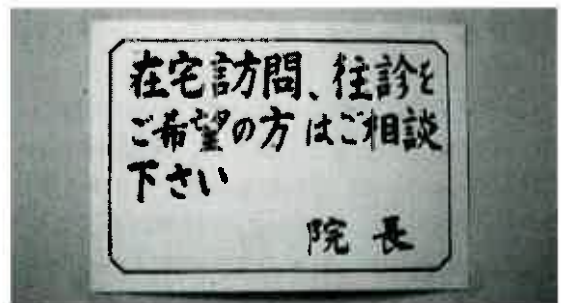 在宅訪問、往診を
ご希望の方はご相談
下さい
院長